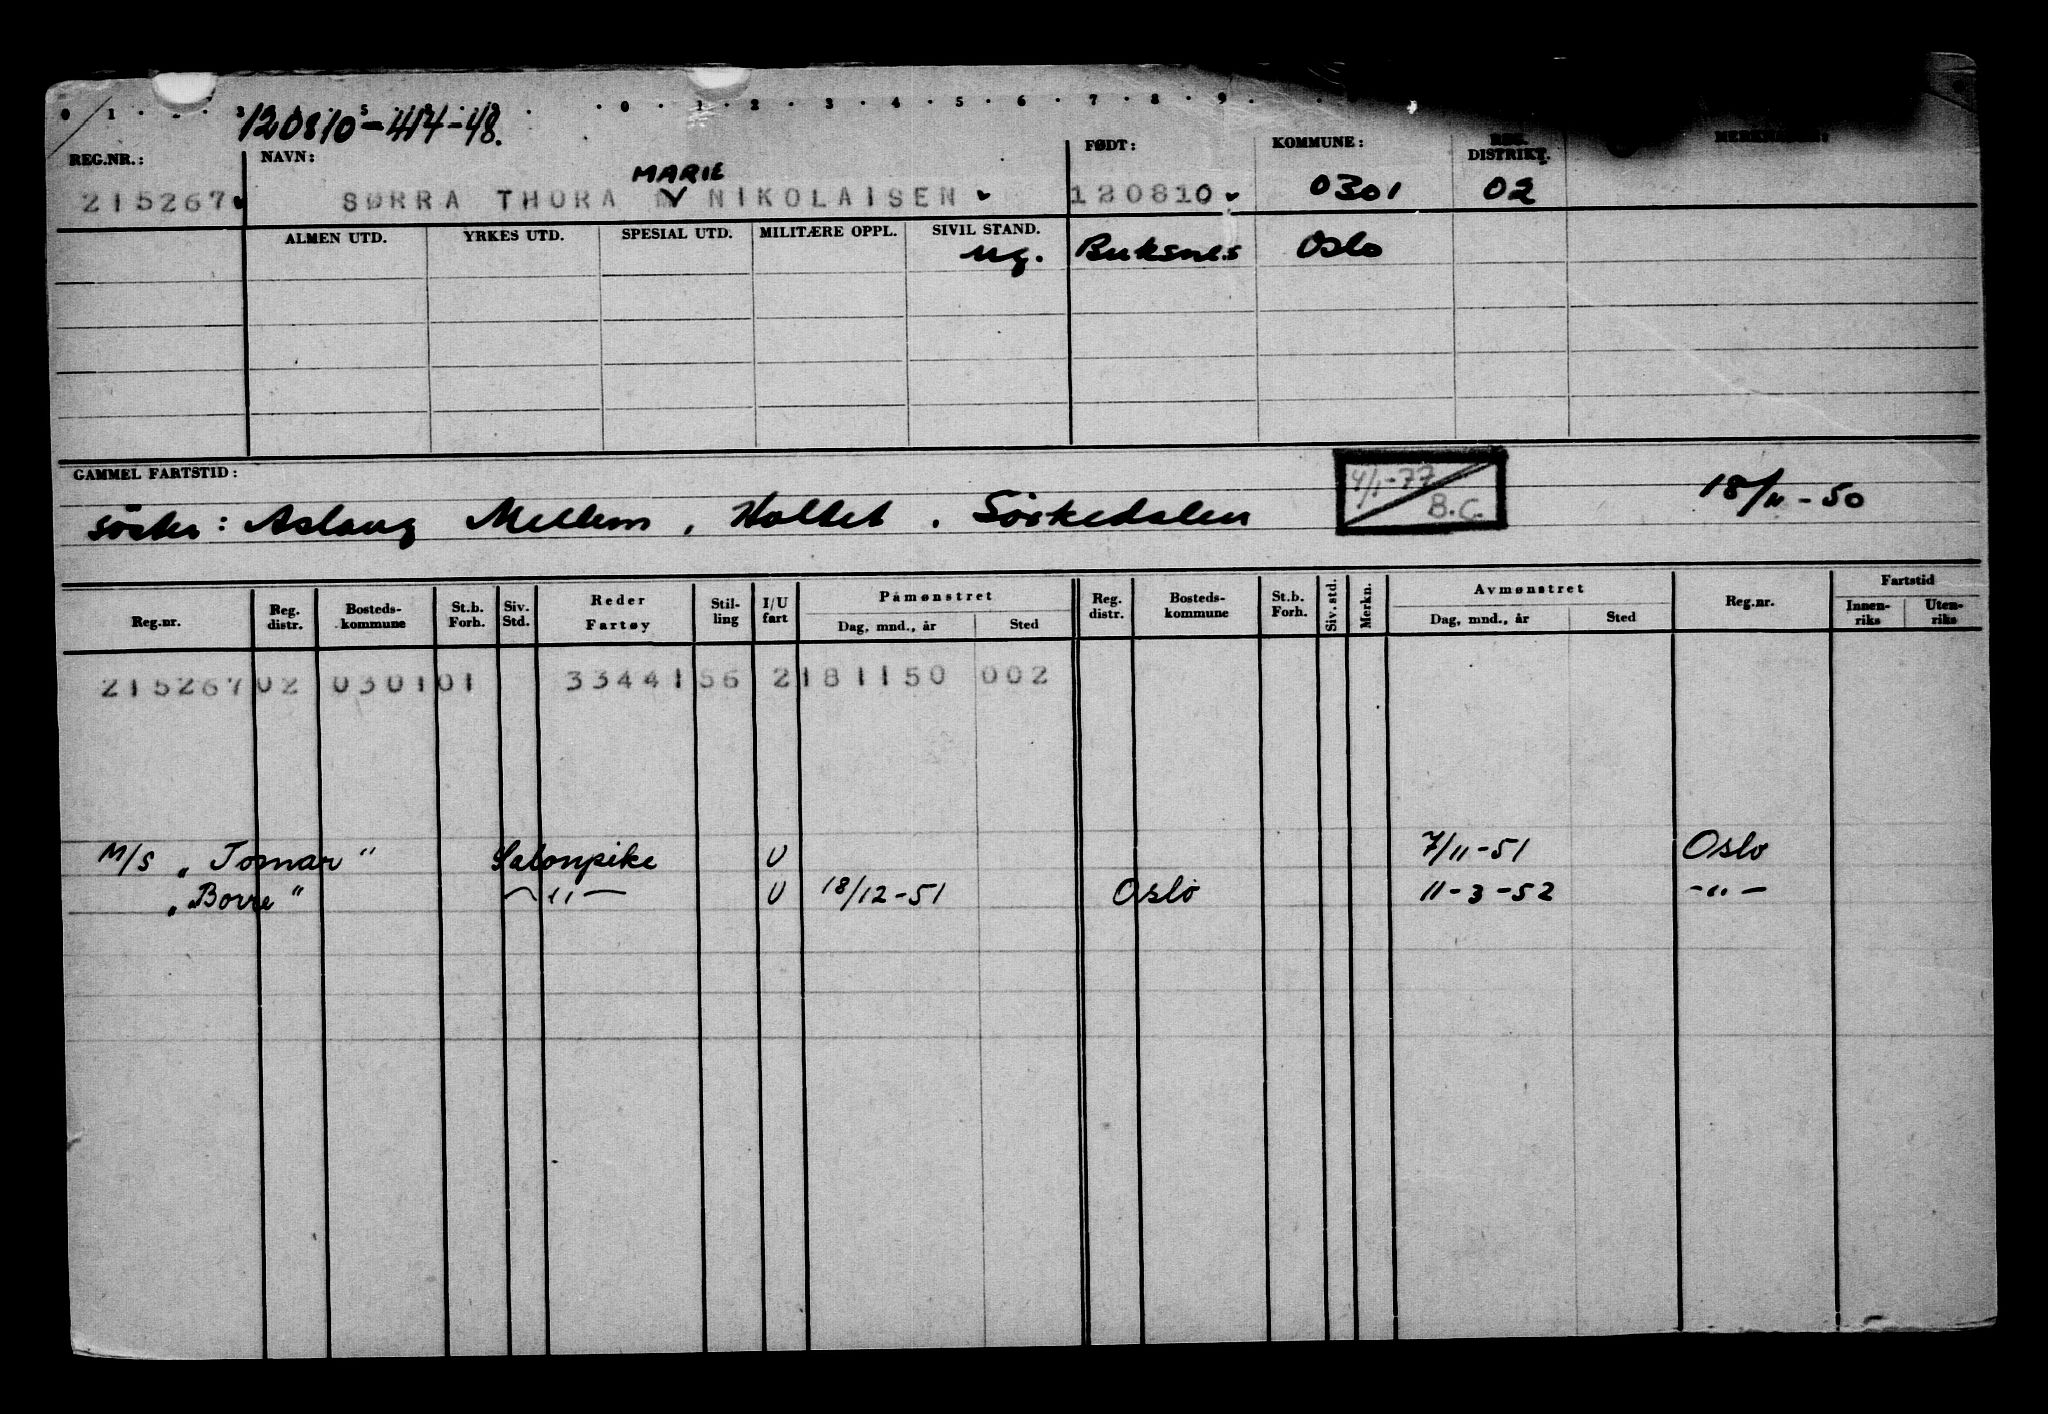 0 1 3 5 0 1 2 3 4 5 6 7 8 9
120810-414-48.
REG.NR.: NAVN: FØDT: KOMMUNE: REG. DISTRIKT.
MARIE
215267 SØRRA THORA M NIKOLAISEN 120810 0301 02
ALMEN UTD. YRKES UTD. SPESIAL UTD. MILITÆRE OPPL. SIVIL STAND.
ug. Buksnes Oslo
GAMMEL FARTSTID: 4/1-77 B.C. 18/11-50
söster: Aslaug Mellem, Holtet, Sörkedalen
Reg.nr. Reg. distr. Bosteds-kommune St.b. Forh. Siv. Std. Reder Fartøy Stil-ling I/U fart Påmønstret Dag, mnd., år Sted Reg. distr. Bosteds-kommune St.b. Forh. Siv. std. Merkn. Avmønstret Dag, mnd., år Sted Reg.nr. Fartstid Innen-riks Uten-riks
215267 02 0301 01 33441 56 2 181150 002
M/S "Tomar" Salonpike U 7/11-51 Oslo
"Borre" -"- U 18/12-51 Oslo 11-3-52 -"-